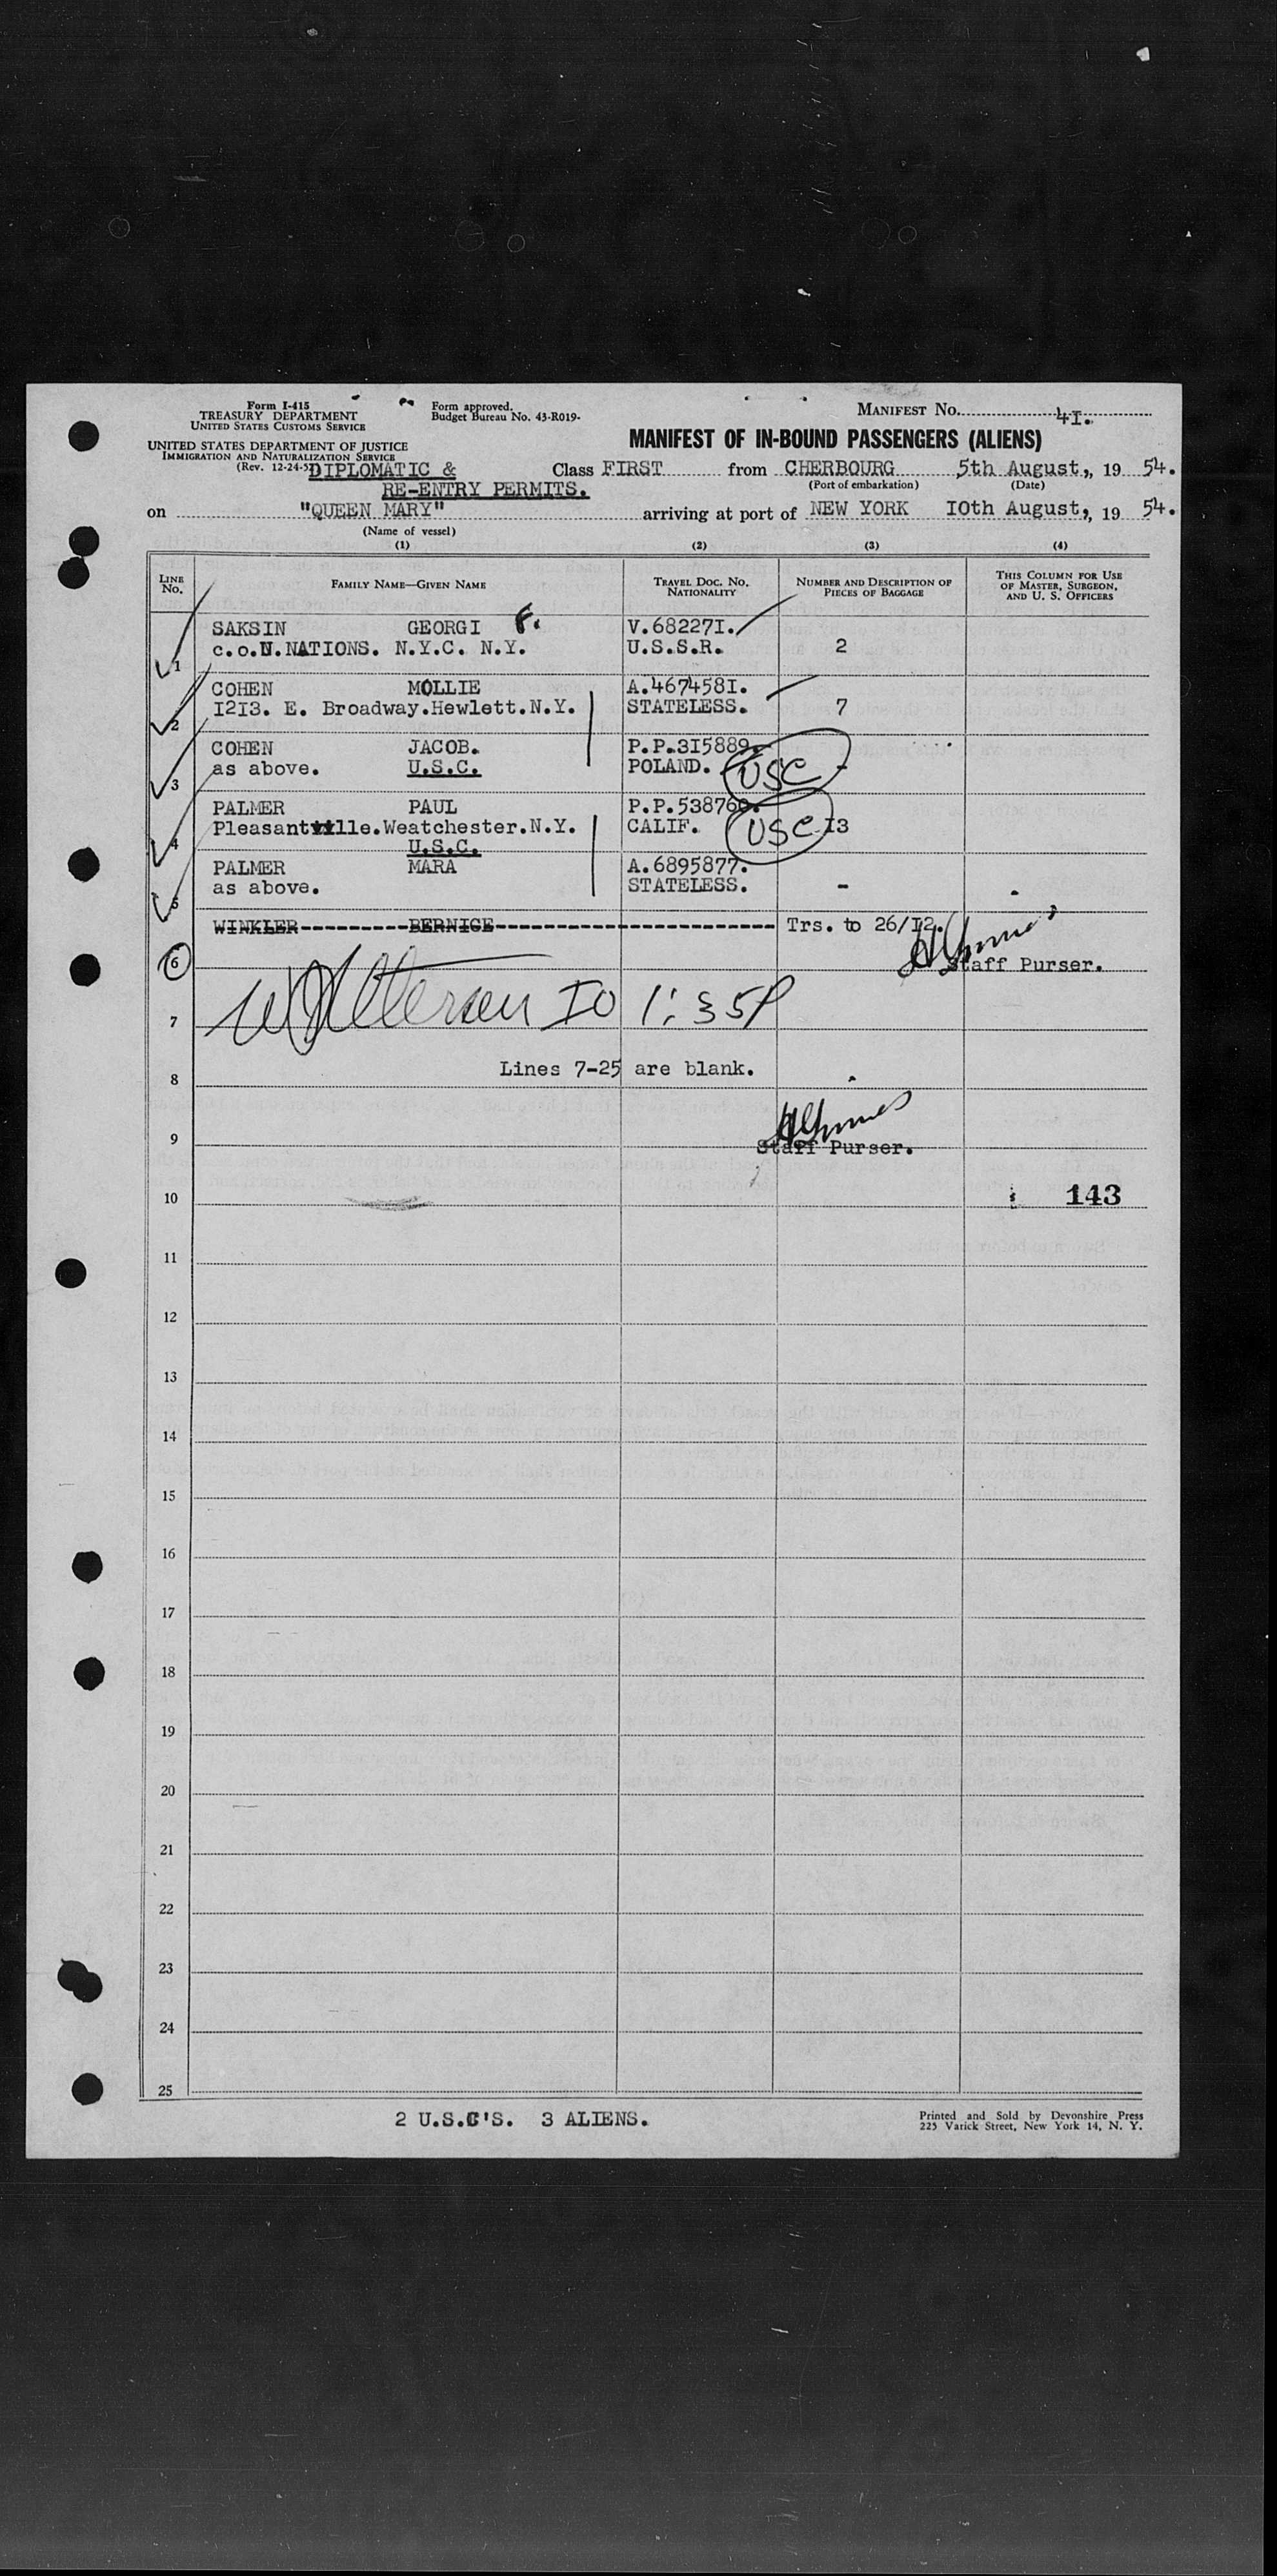 Form I-415
TREASURY DEPARTMENT
UNITED STATES CUSTOMS SERVICE
Form approved.
Budget Bureau No. 43-R019-
MANIFEST No. 4I.
UNITED STATES DEPARTMENT OF JUSTICE
IMMIGRATION AND NATURALIZATION SERVICE
(Rev. 12-24-5
MANIFEST OF IN-BOUND PASSENGERS (ALIENS)
DIPLOMATIC & Class FIRST from CHERBOURG 5th August, 19 54.
RE-ENTRY PERMITS. (Port of embarkation) (Date)
on "QUEEN MARY" arriving at port of NEW YORK I0th August, 19 54.
(Name of vessel)
(1) (2) (3) (4)
LINE No. FAMILY NAME—GIVEN NAME TRAVEL DOC. NO. NATIONALITY NUMBER AND DESCRIPTION OF PIECES OF BAGGAGE THIS COLUMN FOR USE OF MASTER, SURGEON, AND U. S. OFFICERS
SAKSIN GEORGI F. V.68227I.
1 c.o.U.NATIONS. N.Y.C. N.Y. U.S.S.R. 2
COHEN MOLLIE A.467458I.
2 I2I3. E. Broadway.Hewlett.N.Y. STATELESS. 7
COHEN JACOB. P.P.3I5889.
3 as above. U.S.C. POLAND. USC -
PALMER PAUL P.P.538760.
4 Pleasantville.Weatchester.N.Y. CALIF. USC I3
U.S.C.
PALMER MARA A.6895877.
5 as above. STATELESS. -
WINKLER---------BERNICE Trs. to 26/I2.
6 Staff Purser.
7 IO 1:35P
Lines 7-25 are blank.
8
9 Staff Purser.
10 143
11
12
13
14
15
16
17
18
19
20
21
22
23
24
25
2 U.S.C'S. 3 ALIENS.
Printed and Sold by Devonshire Press
225 Varick Street, New York 14, N. Y.